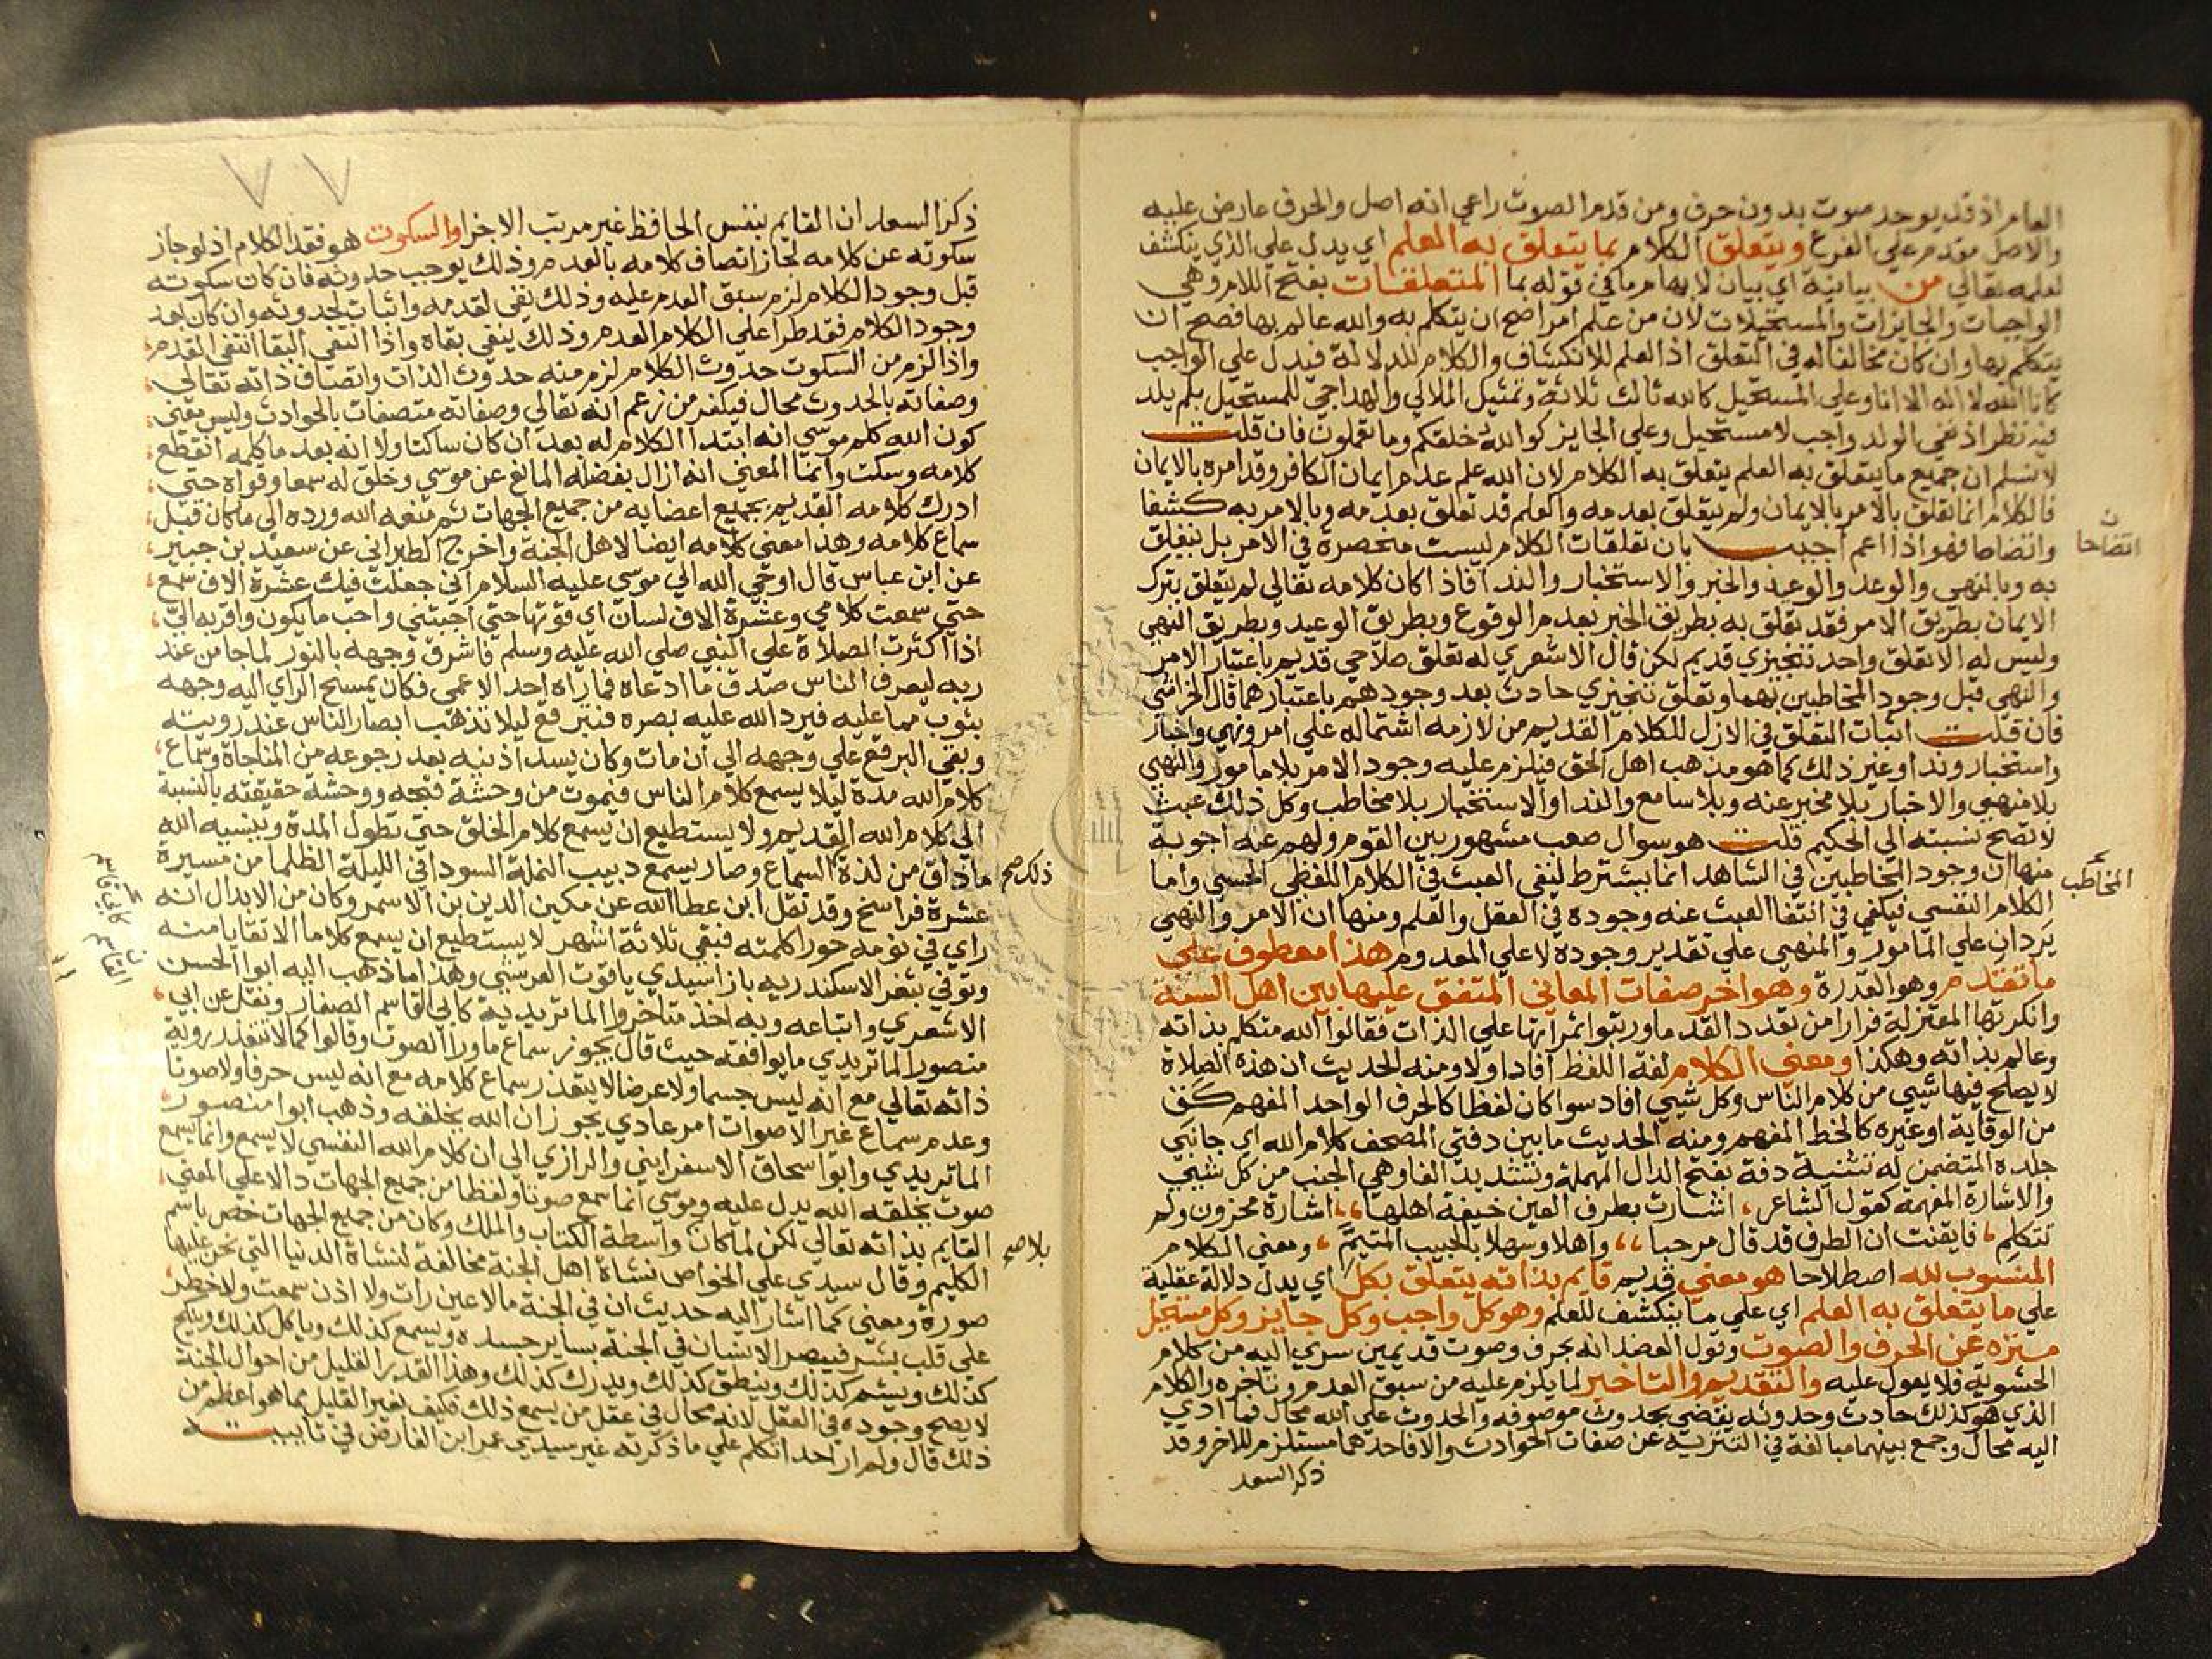 العام اذ قد يوجد صوت بدون حرف ومن قدم الصوت راعي انه اصل والحرف عارض عليه
والاصل مقدم علي الفرع ويتعلق الكلام بما يتعلق به العلم اي يدل علي الذي ينكشف
لعلمه تعالي من بيانية اي بيان لابهام ما في قوله بما المتعلقات بفتح اللام وهي
الواجبات والجايزات والمستحيلات لان من علم امرا صح ان يتكلم به والله عالم بها فصح ان
يتكلم بها وان كان مخالفا له في التعلق اذ العلم للانكشاف والكلام للدلالة فيدل علي الواجب
كانا الله لا اله الا انا وعلي المستحيل كالله ثالث ثلاثة وتمثيل الملالي والهداجي للمستحيل بلم يلد
فيه نظر اذ نفي الولد واجب لا مستحيل وعلي الجايز كوالله خلقكم وما تعملون فان قلت
لا نسلم ان جميع ما يتعلق به العلم يتعلق به الكلام لان الله علم عدم ايمان الكافر وقد امره بالايمان
فالكلام انما تعلق بالامر بالايمان ولم يتعلق بعدمه والعلم قد تعلق بعدمه وبالامر به كشفا
واتضاحا فهو اذا اعم اجيب بان تعلقات الكلام ليست منحصرة في الامر بل يتعلق
اتضاحا
به وبالنهي والوعد والوعيد والخبر والاستخبار والندا فاذا كان كلامه تعالي لم يتعلق بترك
الايمان بطريق الامر فقد تعلق به بطريق الخبر بعدم الوقوع وبطريق الوعيد وبطريق النهي
وليس له الا تعلق واحد تنجيزي قديم لكن قال الاشعري له تعلق صلاحي قديم باعتبار الامر
والنهي قبل وجود المخاطبين بهما وتعلق تنجيزي حادث بعد وجودهم باعتبارهما قال الخراشي
فان قلت اثبات التعلق في الازل للكلام القديم من لازمه اشتماله علي امر ونهي واخبار
واستخبار وندا وغير ذلك كما هو مذهب اهل الحق فيلزم عليه وجود الامر بلا مامور والنهي
بلا منهي والاخبار بلا مخبر عنه وبلا سامع والندا والاستخبار بلا مخاطب وكل ذلك عبث
لا تصح نسبته الي الحكيم قلت هو سوال صعب مشهور بين القوم ولهم عنه اجوبة
منها ان وجود المخاطبين في الشاهد انما يشترط لنفي العبث في الكلام اللفظي الحسي واما
المخاطب
الكلام النفسي فيكفي في انتفا العبث عنه وجوده في العقل والعلم ومنها ان الامر والنهي
يردان علي المامور والمنهي علي تقدير وجوده لا علي المعدوم هذا معطوف علي
ما تقدم وهو القدرة وهو اخر صفات المعاني المتفق عليها بين اهل السنة
وانكرتها المعتزلة فرارا من تعدد القدما ورتبوا ثمراتها علي الذات فقالوا الله متكلم بذاته
وعالم بذاته وهكذا ومعني الكلام لغة اللفظ افاد اولا ومنه الحديث ان هذه الصلاة
لا يصلح فيها شيي من كلام الناس وكل شيي افاد سوا كان لفظا كالحرف الواحد المفهم كق
من الوقاية او غيره كالخط المفهم ومنه الحديث ما بين دفتي المصحف كلام الله اي جانبي
جلده المتضمن له تثنية دفة بفتح الدال المهملة وتشديد الفا وهي الجنب من كل شيي
والاشارة المفهمة كقول الشاعر ، اشارت بطرف العين خيفة اهلها ،، اشارة محزون ولم
تتكلم ، فايقنت ان الطرف قد قال مرحبا ،، واهلا وسهلا بالحبيب المتيم ، ومعني الكلام
المنسوب لله اصطلاحا هو معني قديم قايم بذاته يتعلق بكل اي يدل دلالة عقلية
علي ما يتعلق به العلم اي علي ما ينكشف للعلم وهو كل واجب وكل جايز وكل مستحيل
منزه عن الحرف والصوت وقول العضد انه بحرف وصوت قديمين سري اليه من كلام
الحشوية فلا يعول عليه والتقديم والتاخير لما يلزم عليه من سبق العدم وتاخره والكلام
الذي هو كذلك حادث وحدوثه يقضي بحدوث موصوفه والحدوث علي الله محال فما ادي
اليه محال وجمع بينهما مبالغة في التنزيه عن صفات الحوادث والا فاحدهما مستلزم للاخر وقد
ذكر السعد
٧٧
ذكر السعد ان القايم بنفس الحافظ غير مرتب الاجزا والسكوت هو فقد الكلام اذ لو جاز
سكوته عن كلامه لجاز اتصاف كلامه بالعدم وذلك يوجب حدوثه فان كان سكوته
قبل وجود الكلام لزم سبق العدم عليه وذلك نفي لقدمه واثبات لحدوثه وان كان بعد
وجود الكلام فقد طرا علي الكلام العدم وذلك ينفي بقاه واذا انتفي البقا انتفي القدم
واذا لزم من السكوت حدوث الكلام لزم منه حدوث الذات واتصاف ذاته تعالي
وصفاته بالحدوث محال فيكفر من زعم انه تعالي وصفاته متصفات بالحوادث وليس معني
كون الله كلم موسي انه ابتدا الكلام له بعد ان كان ساكتا ولا انه بعد ما كلمه انقطع
كلامه وسكت وانما المعني انه ازال بفضله المانع عن موسي وخلق له سمعا وقواه حتي
ادرك كلامه القديم بجميع اعضايه من جميع الجهات ثم منعه الله ورده الي ما كان قبل
سماع كلامه وهذا معني كلامه ايضا لاهل الجنة واخرج الطبراني عن سعيد بن جبير
عن ابن عباس قال اوحي الله الي موسي عليه السلام اني جعلت فيك عشرة الاف سمع
حتي سمعت كلامي وعشرة الاف لسان اي قوتها حتي اجبتني واحب ما يكون واقربه الي
اذا اكثرت الصلاة علي النبي صلي الله عليه وسلم فاشرق وجهه بالنور لما جا من عند
ربه ليعرف الناس صدق ما ادعاه فما راه احد الا عمي فكان يمسح الراي اليه وجهه
بثوب مما عليه فيرد الله عليه بصره فتبرقع ليلا تذهب ابصار الناس عند رويته
وبقي البرقع علي وجهه الي ان مات وكان يسد اذنيه بعد رجوعه من المناجاة وسماع
كلام الله مدة ليلا يسمع كلام الناس فيموت من وحشة قبحه ووحشة حقيقته بالنسبة
الي كلام الله القديم ولا يستطيع ان يسمع كلام الخلق حتي تطول المدة وينسيه الله
ما ذاق من لذة السماع وصار يسمع دبيب النملة السودا في الليلة الظلما من مسيرة
ذلك صح
عشرة فراسخ وقد نقل ابن عطا الله عن مكين الدين بن الاسمر وكان من الابدال انه
راي في نومه حورا كلمته فبقي ثلاثة اشهر لا يستطيع ان يسمع كلاما الا تقايا منه
وتوفي بثغر الاسكندريه بازا سيدي ياقوت العرشي وهذا ما ذهب اليه ابوا الحسن
الاشعري واتباعه وبه اخذ متاخروا الماتريدية كابي القاسم الصفار ونقل عن ابي
منصور الماتريدي ما يوافقه حيث قال يجوز سماع ما ورا الصوت وقالوا كما لا تتعذر روية
ذاته تعالي مع انه ليس جسما ولا عرضا لا يتعذر سماع كلامه مع انه ليس حرفا ولا صوتا
وعدم سماع غير الاصوات امر عادي يجوز ان الله يخلفه وذهب ابوا منصور
الماتريدي وابوا سحاق الاسفرايني والرازي الي ان كلام الله النفسي لا يسمع وانما يسمع
صوت يخلقه الله يدل عليه وموسي انما سمع صوتا ولفظا من جميع الجهات دالا علي المعني
القايم بذاته تعالي لكن لما كان واسطة الكتاب والملك وكان من جميع الجهات خص باسم
بلا صح
الكليم وقال سيدي علي الخواص نشاة اهل الجنة مخالفة لنشاة الدنيا التي نحن عليها
صورة ومعني كما اشار اليه حديث ان في الجنة ما لا عين رات ولا اذن سمعت ولا خطر
علي قلب بشر فيبصر الانسان في الجنة بساير جسده ويسمع كذلك وياكل كذلك وينكح
كذلك ويشم كذلك وينطق كذلك ويدرك كذلك وهذا القدر القليل من احوال الجنة
لا يصح وجوده في العقل لانه محال في عقل من يسمع ذلك فكيف بغير القليل مما هو اعظم من
ذلك قال ولم ار احدا تكلم علي ما ذكرته غير سيدي عمر ابن الفارض في تاييته